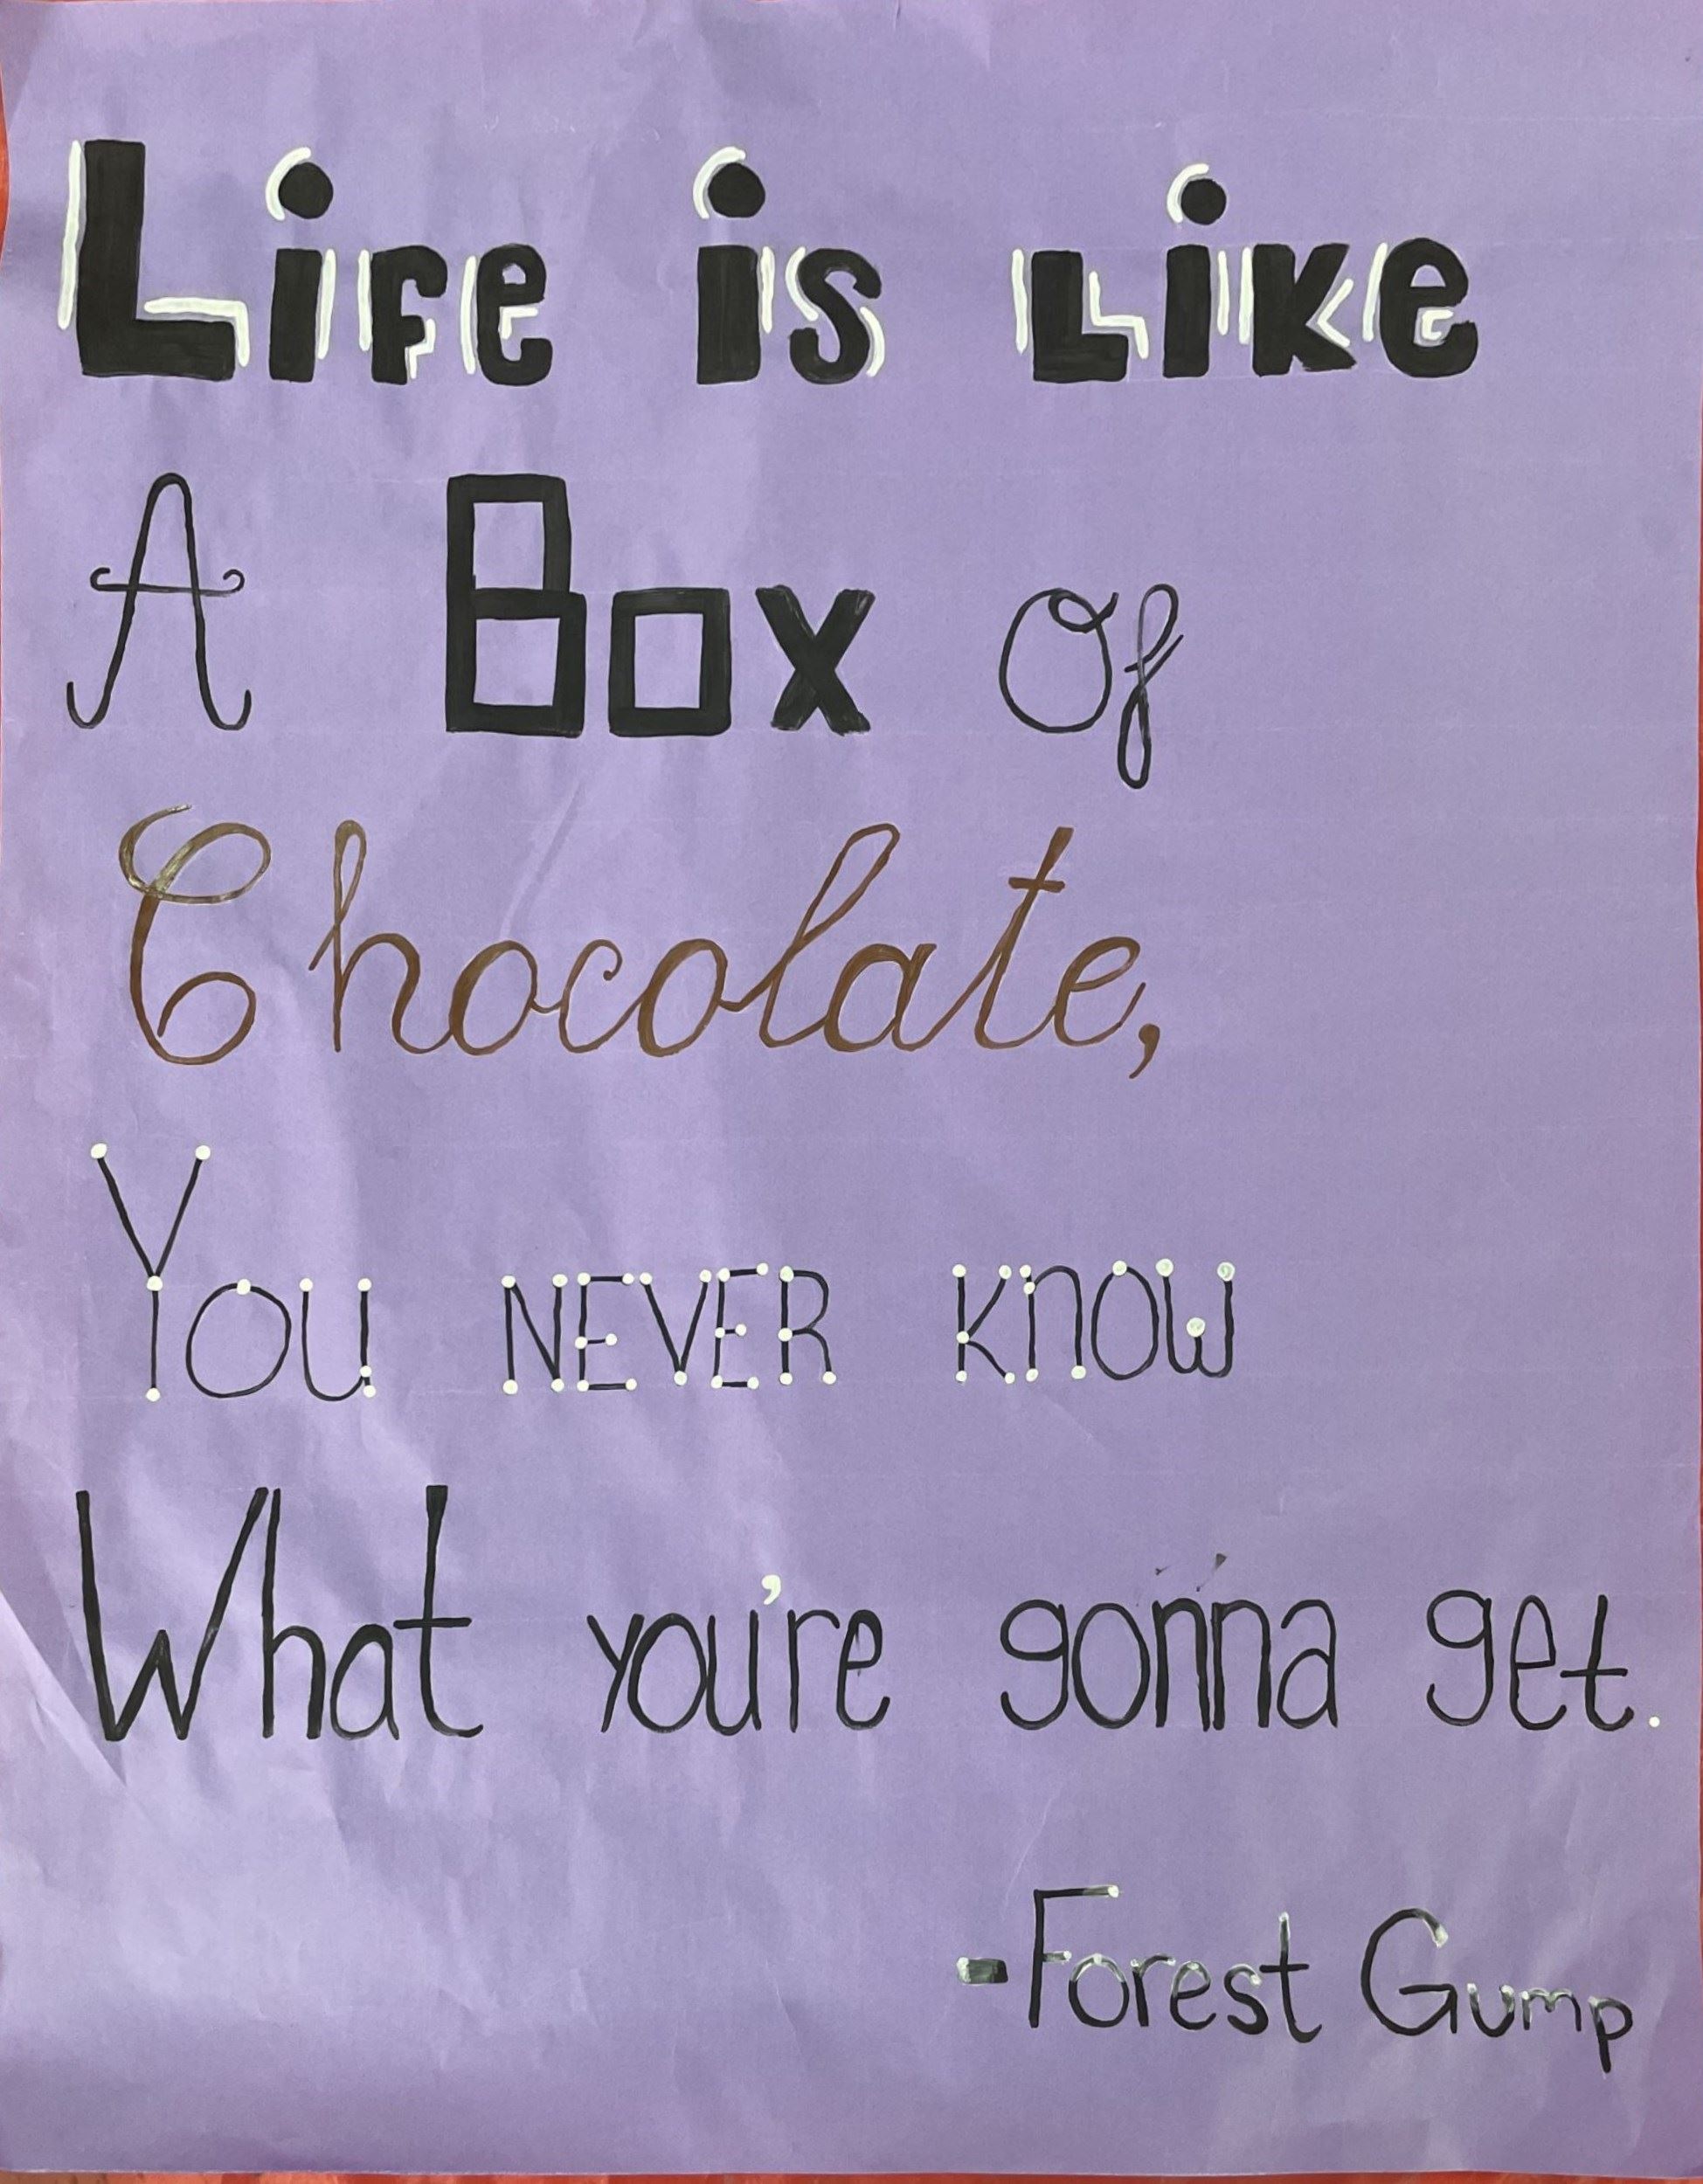 Life is Like
A Box Of
Chocolate,
You NEVER Know
What you're gonna get.
-Forest Gump